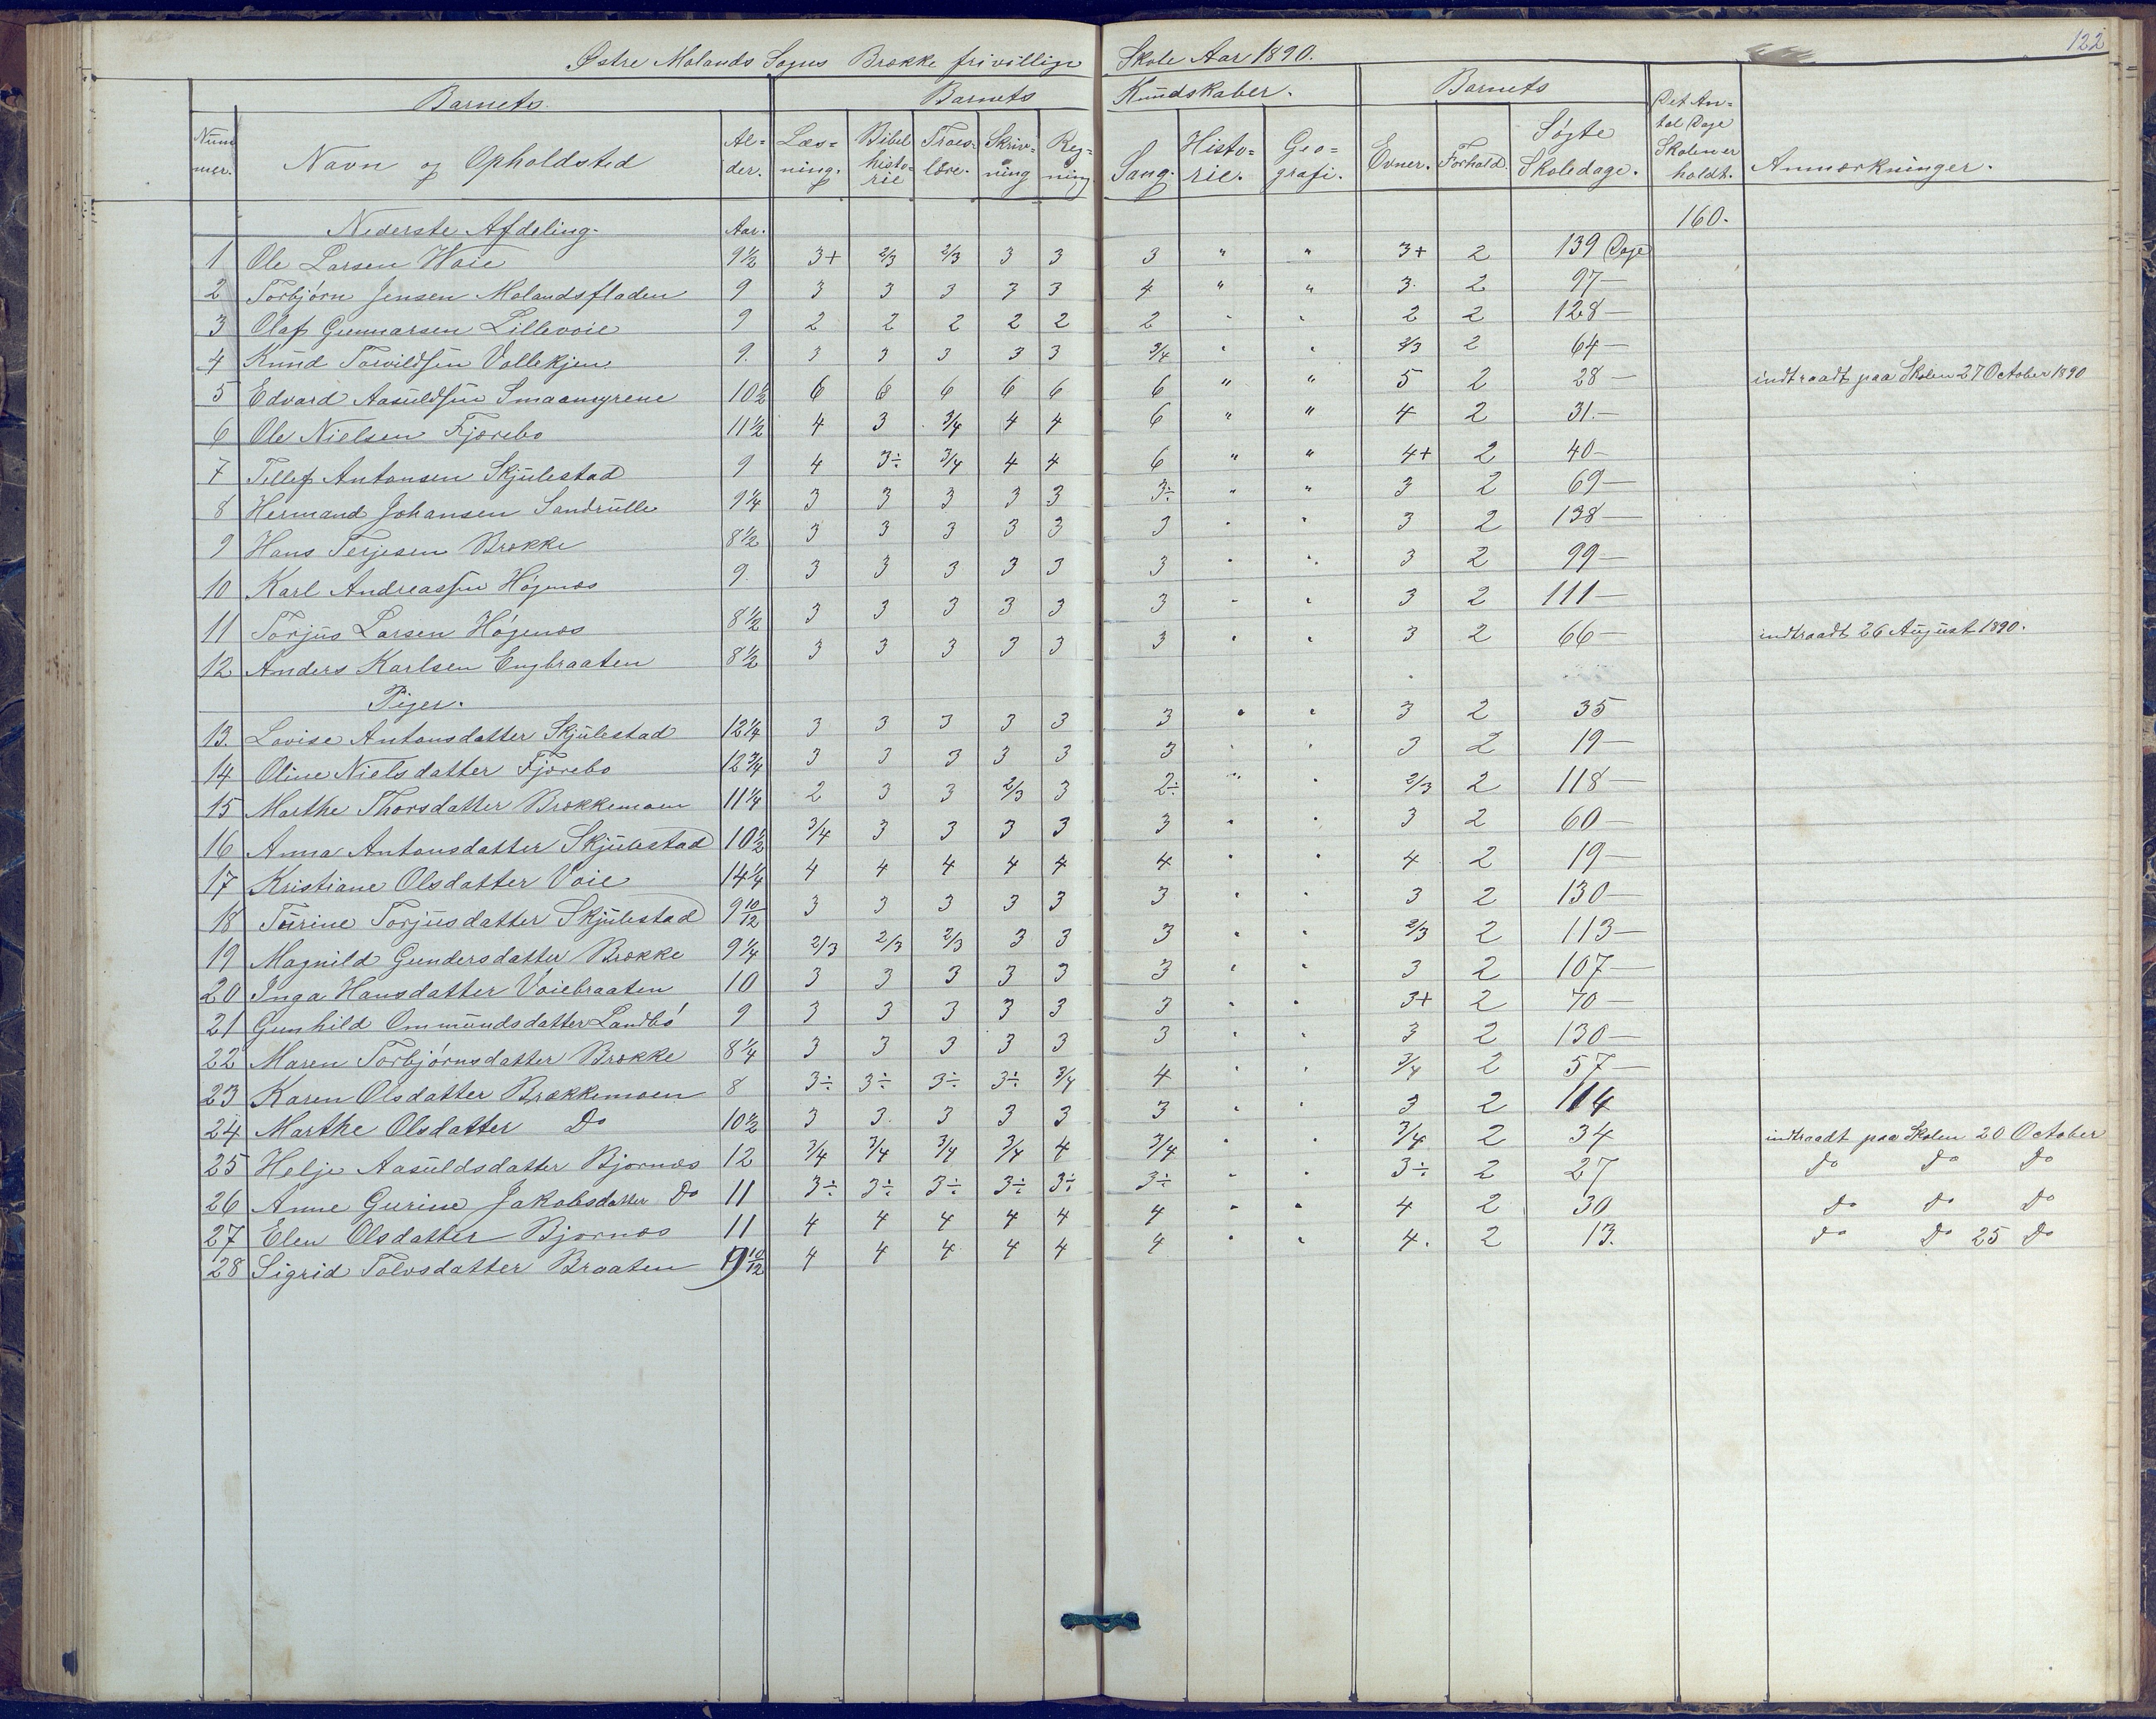 122
Østre Molands Sogns Brække frivillige Skole Aar 1890.
Barnets Barnets Kundskaber. Barnets
Nummer. Navn og Opholdsted Alder. Læsning. Bibelhistorie Troeslære. Skrivning Regning Sang. Historie. Geografi. Evner. Forhold. Søgte Skoledage. Det Antal Dage Skolen er holdt. Anmærkninger.
Nederste Afdeling. Aar. 160.
1 Ole Larsen Voie 9½ 3+ 2/3 2/3 3 3 3 " " 3+ 2 139 Dage
2 Torbjørn Jensen Molandsfladen 9 3 3 3 3 3 4 " " 3. 2 97 —
3 Olaf Gunnarsen Lillevoie 9 2 2 2 2 2 2 " " 2 2 128 —
4 Knud Torvildsen Vallekjen 9. 3 3 3 3 3 3/4 " " 2/3 2 64 —
5 Edvard Aasuldsen Smaamyrene 10½ 6 6 6 6 6 6 " " 5 2 28 — indtraadt paa Skolen 27 October 1890
6 Ole Nielsen Fjærebo 11½ 4 3 3/4 4 4 6 " " 4 2 31. —
7 Tellef Antonsen Skjulestad 9 4 3÷ 3/4 4 4 6 " " 4+ 2 40 —
8 Hermand Johansen Sandrulle 9¼ 3 3 3 3 3 3÷ " " 3 2 69 —
9 Hans Terjesen Brække 8½ 3 3 3 3 3 3 " " 3 2 138 —
10 Karl Andreassen Høgenæs 9. 3 3 3 3 3 3 " " 3 2 99 —
11 Torjus Larsen Høgenæs 8½ 3 3 3 3 3 3 " " 3 2 111 —
12. Anders Karlsen Engbraaten 8½ 3 3 3 3 3 3 " " 3 2 66 — indtraadt 26 August 1890.
Piger.
13. Lovise Antonsdatter Skjulestad 12¼ 3 3 3 3 3 3 " " 3 2 35
14 Oline Nielsdatter Fjærebo 12¾ 3 3 3 3 3 3 " " 3 2 19 —
15 Marthe Thorsdatter Brækkemoen 11¼ 2 3 3 2/3 3 2÷ " " 2/3 2 118 —
16 Anna Antonsdatter Skjulestad 10½ 3/4 3 3 3 3 3 " " 3 2 60 —
17 Kristiane Olsdatter Voie 14¼ 4 4 4 4 4 4 " " 4 2 19 —
18 Turine Torjusdatter Skjulestad 9 10/12 3 3 3 3 3 3 " " 3 2 130 —
19 Magnild Gundersdatter Brække 9¼ 2/3 2/3 2/3 3 3 3 " " 2/3 2 113 —
20 Inga Hansdatter Voiebraaten 10 3 3 3 3 3 3 " " 3 2 107 —
21 Gunhild Ommundsdatter Landbø 9 3 3 3 3 3 3 " " 3+ 2 70 —
22 Maren Torbjørnsdatter Brække 8¼ 3 3 3 3 3 3 " " 3 2 130 —
23 Karen Olsdatter Brækkemoen 8 3÷ 3÷ 3÷ 3÷ 3/4 4 " " 3/4 2 57 —
24 Marthe Olsdatter Do 10½ 3 3. 3 3 3 3 " " 3 2 114
25 Helje Aasuldsdatter Bjornæs 12 3/4 3/4 3/4 3/4 4 3/4 " " 3/4 2 34 indtraadt paa Skolen 20 October
26 Anne Gurine Jakobsdatter Do 11 3÷ 3÷ 3÷ 3÷ 3÷ 3÷ " " 3÷ 2 27 do do do
27 Elen Olsdatter Bjornæs 11 4 4 4 4 4 4 " " 4 2 30 do do do
28 Sigrid Tolvsdatter Braaten 9 10/12 4 4 4 4 4 4 " " 4. 2 13. do do 25 do